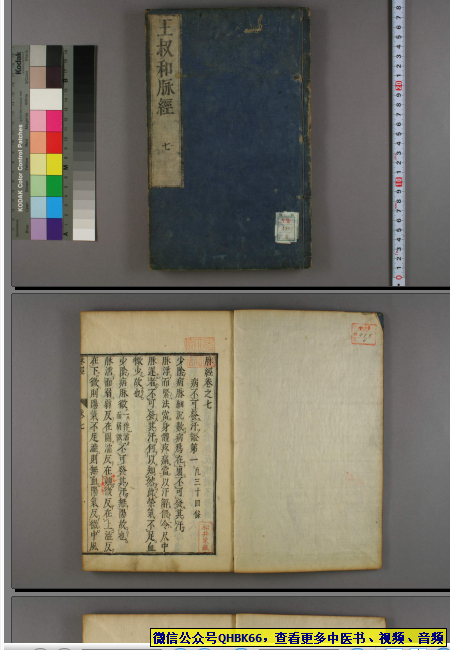 王叔和脉經
七
Kodak
KODAK Color Control Patches
脉經卷之七
病不可發汗證第一
少陰病脉細沉數病爲在裏不可發其汗
脉浮而緊法當身體疼痛當以汗解假令尺中
脉遲者不可發其汗何以知然此榮氣不足血
微少故也
少陰病脉微不可發其汗無陽故也
脉濡而弱弱反在關濡反在巔微反在上澀反
在下微則陽氣不足澀則無血陽氣反微中風
微信公众号QHBK66，查看更多中医书、视频、音频